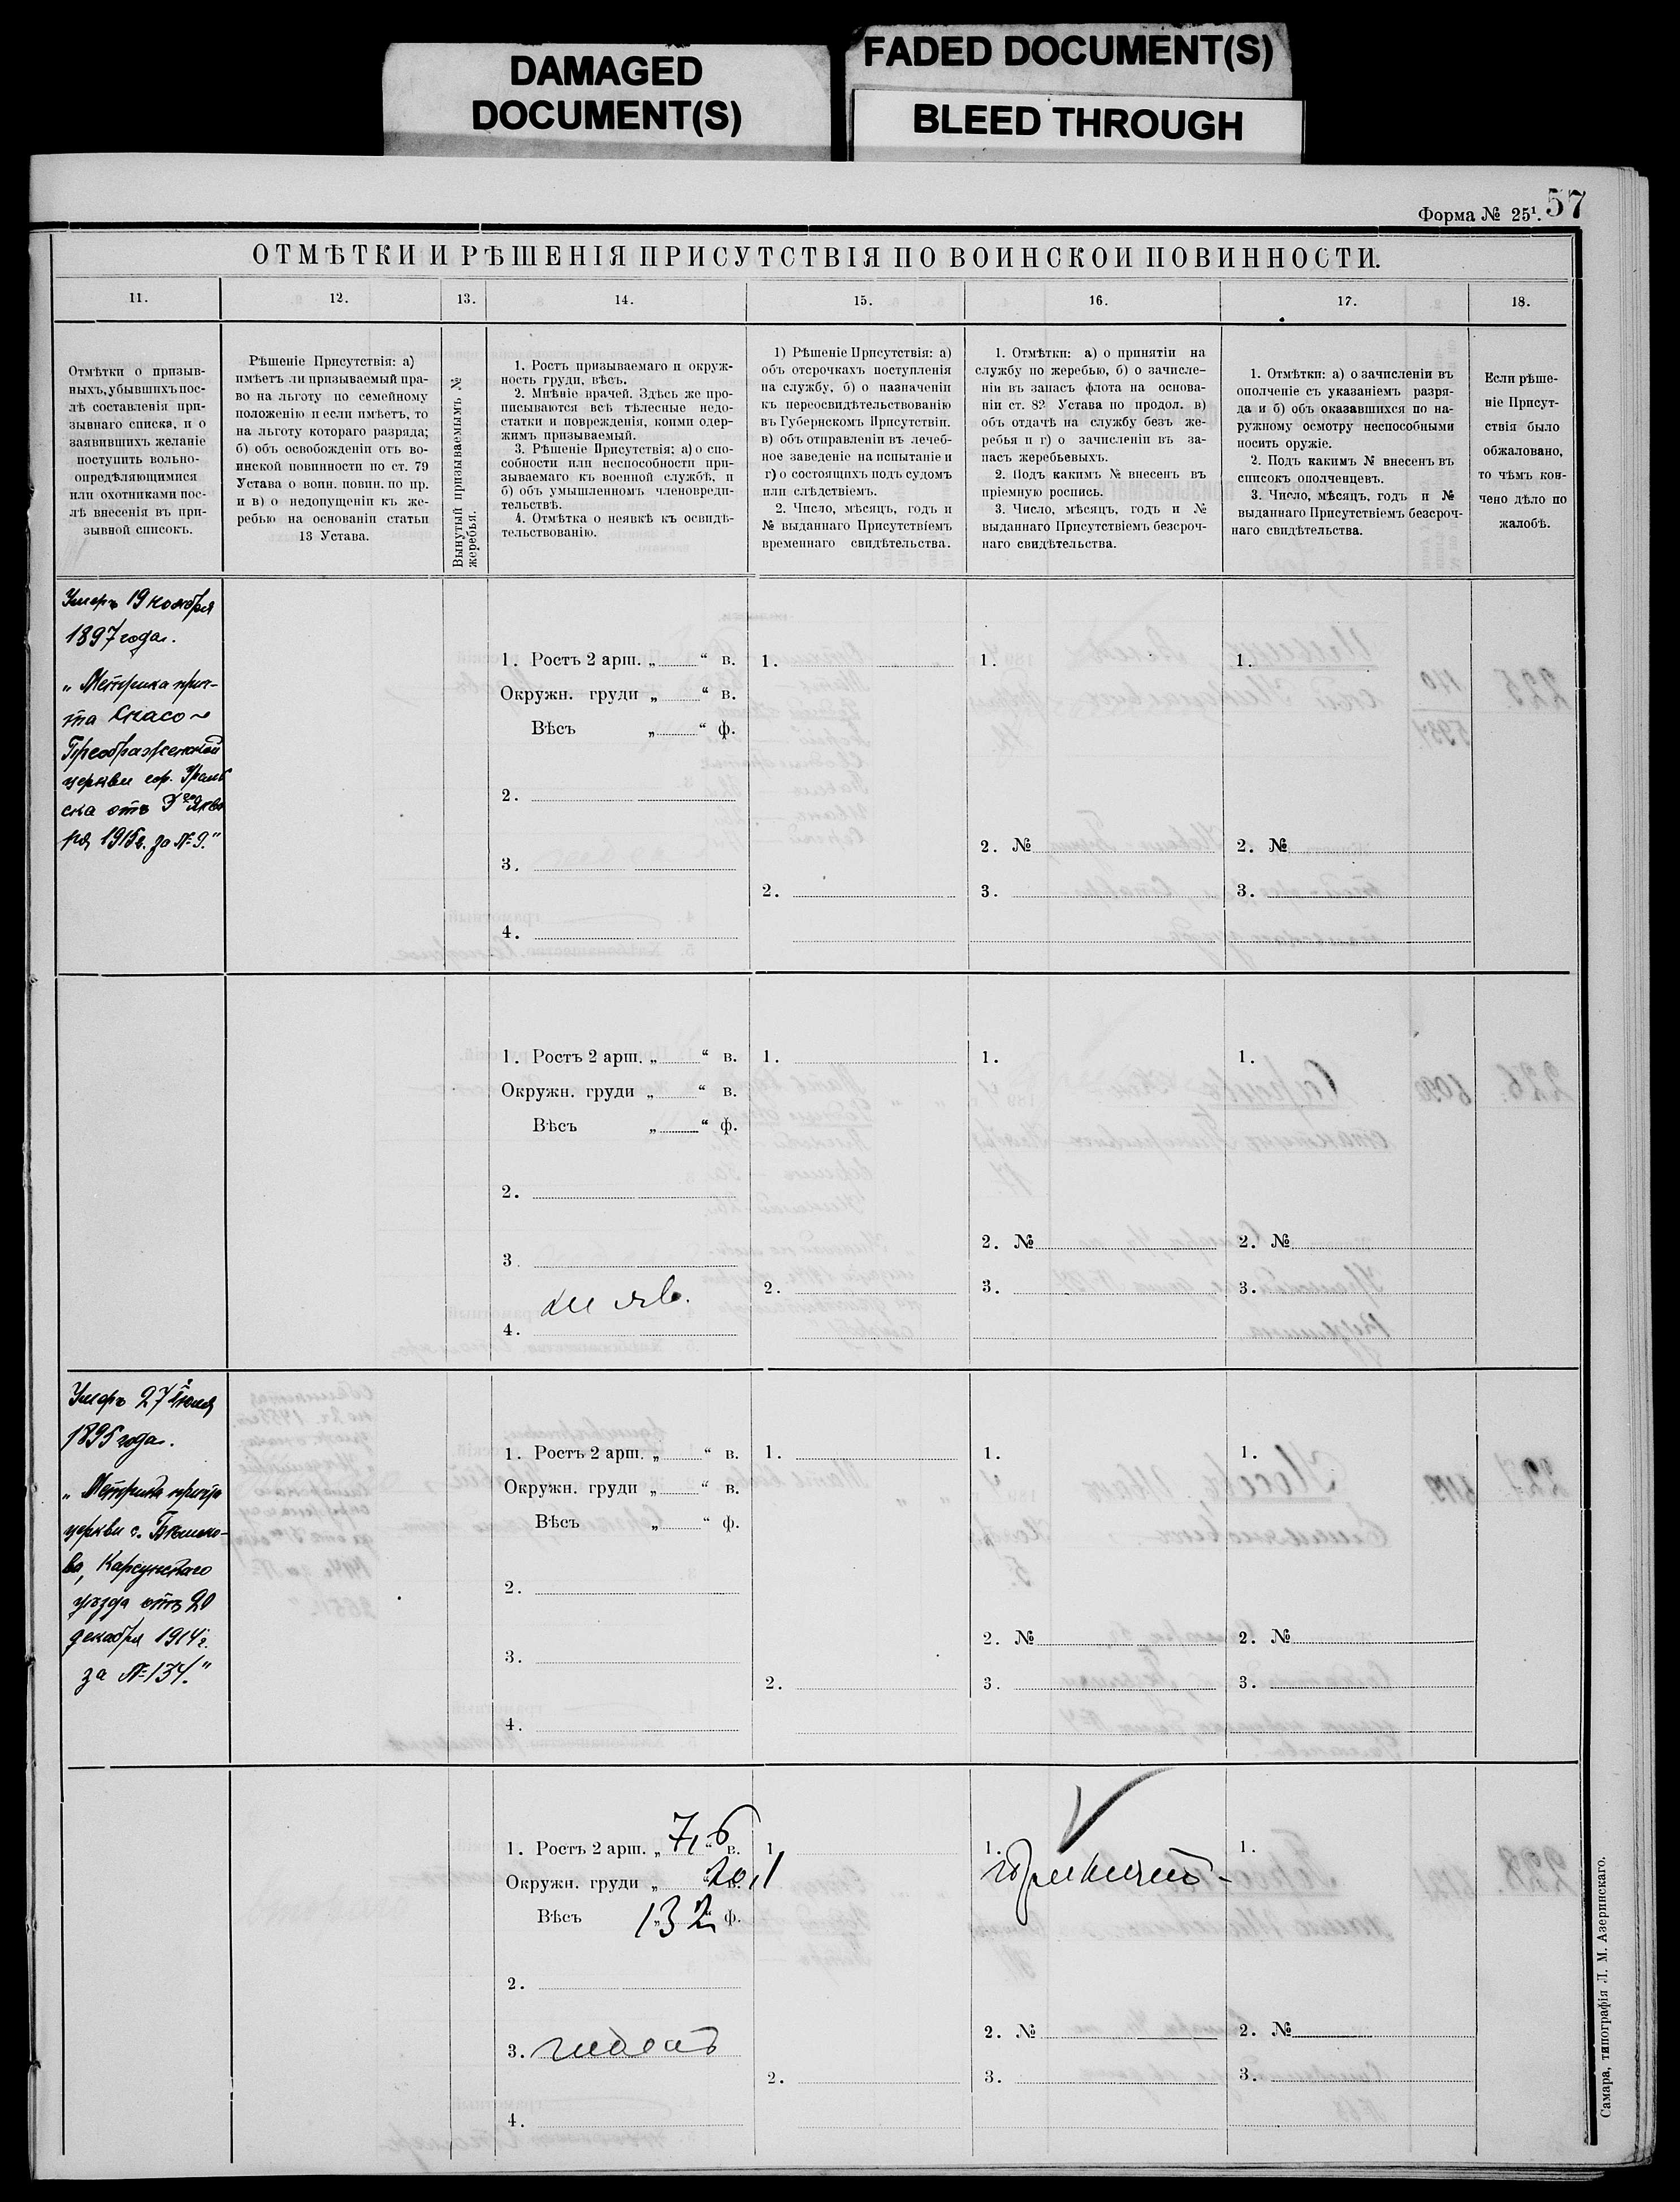 DAMAGED
DOCUMENT(S)
FADED DOCUMENT(S)
BLEED THROUGH
Форма № 25¹. 57
ОТМѢТКИ И РѢШЕНІЯ ПРИСУТСТВІЯ ПО ВОИНСКОЙ ПОВИННОСТИ.
11.
12.
13.
14.
15.
16.
17.
18.
Отмѣтки о призыв-
ныхъ, убывшихъ пос-
лѣ составленія при-
зывнаго списка, и о
заявившихъ желаніе
поступить вольно-
опредѣляющимися
или охотниками пос-
лѣ внесенія въ при-
зывной списокъ.
Рѣшеніе Присутствія: а)
имѣетъ ли призываемый пра-
во на льготу по семейному
положенію и если имѣетъ, то
на льготу котораго разряда;
б) объ освобожденіи отъ во-
инской повинности по ст. 79
Устава о воин. повин. по пр.
и в) о недопущеніи къ же-
ребью на основаніи статьи
13 Устава.
Вынутый призываемымъ №
жеребья.
1. Ростъ призываемаго и окруж-
ность груди, вѣсъ.
2. Мнѣніе врачей. Здѣсь же про-
писываются всѣ тѣлесные недо-
статки и поврежденія, коими одер-
жимъ призываемый.
3. Рѣшеніе Присутствія: а) о спо-
собности или неспособности при-
зываемаго къ военной службѣ, и
б) объ умышленномъ членовреди-
тельствѣ.
4. Отмѣтка о неявкѣ къ освидѣ-
тельствованію.
1) Рѣшеніе Присутствія: а)
объ отсрочкахъ поступленія
на службу, б) о назначеніи
къ переосвидѣтельствованію
въ Губернскомъ Присутствіи.
в) объ отправленіи въ лечеб-
ное заведеніе на испытаніе и
г) о состоящихъ подъ судомъ
или слѣдствіемъ.
2. Число, мѣсяцъ, годъ и
№ выданнаго Присутствіемъ
временнаго свидѣтельства.
1. Отмѣтки: а) о принятіи на
службу по жеребью, б) о зачисле-
ніи въ запасъ флота на основа-
ніи ст. 82 Устава по продол. в)
объ отдачѣ на службу безъ же-
ребья и г) о зачисленіи въ за-
пасъ жеребьевыхъ.
2. Подъ какимъ № внесенъ въ
пріемную роспись.
3. Число, мѣсяцъ, годъ и №
выданнаго Присутствіемъ безсроч-
наго свидѣтельства.
1. Отмѣтки: а) о зачисленіи въ
ополченіе съ указаніемъ разря-
да и б) объ оказавшихся по на-
ружному осмотру неспособными
носить оружіе.
2. Подъ какимъ № внесенъ въ
списокъ ополченцевъ.
3. Число, мѣсяцъ, годъ и №
выданнаго Присутствіемъ безсроч-
наго свидѣтельства.
Если рѣше-
ніе Присут-
ствія было
обжаловано,
то чѣмъ кон-
чено дѣло по
жалобѣ.
Умеръ 19 ноября
1897 года.
„Метрика прич-
та Спасо-
Преображенской
церкви гор.
ска отъ 3го Янва
ря 1915 г. за № 9."
1. Ростъ 2 арш. „ “ в.
Окружн. груди „ “ в.
Вѣсъ „ “ ф.
2.
3.
4.
1.
2.
1.
2. №
3.
1.
2. №
3.
1. Ростъ 2 арш. „ “ в.
Окружн. груди „ “ в.
Вѣсъ „ “ ф.
2.
3
не яв.
4.
1.
2.
1.
2. №
3.
1.
2. №
3.
Умеръ 27 Іюля
1895 года.
„Метрика причта
церкви с.
ва, Карсунскаго
уѣзда отъ 20
декабря 1914 г.
за № 134."
1. Ростъ 2 арш. „ “ в.
Окружн. груди „ “ в.
Вѣсъ „ “ ф.
2.
3.
4.
1.
2.
1.
2. №
3.
1.
2. №
3.
1. Ростъ 2 арш. „ 7,6 “ в.
Окружн. груди „ 20,1 в.
Вѣсъ 132 ф.
2.
3. годенъ
4.
1.
2.
1.
принятъ
2. №
3.
1.
2. №
3.
Самара, типографія Л. М. Азеринскаго.